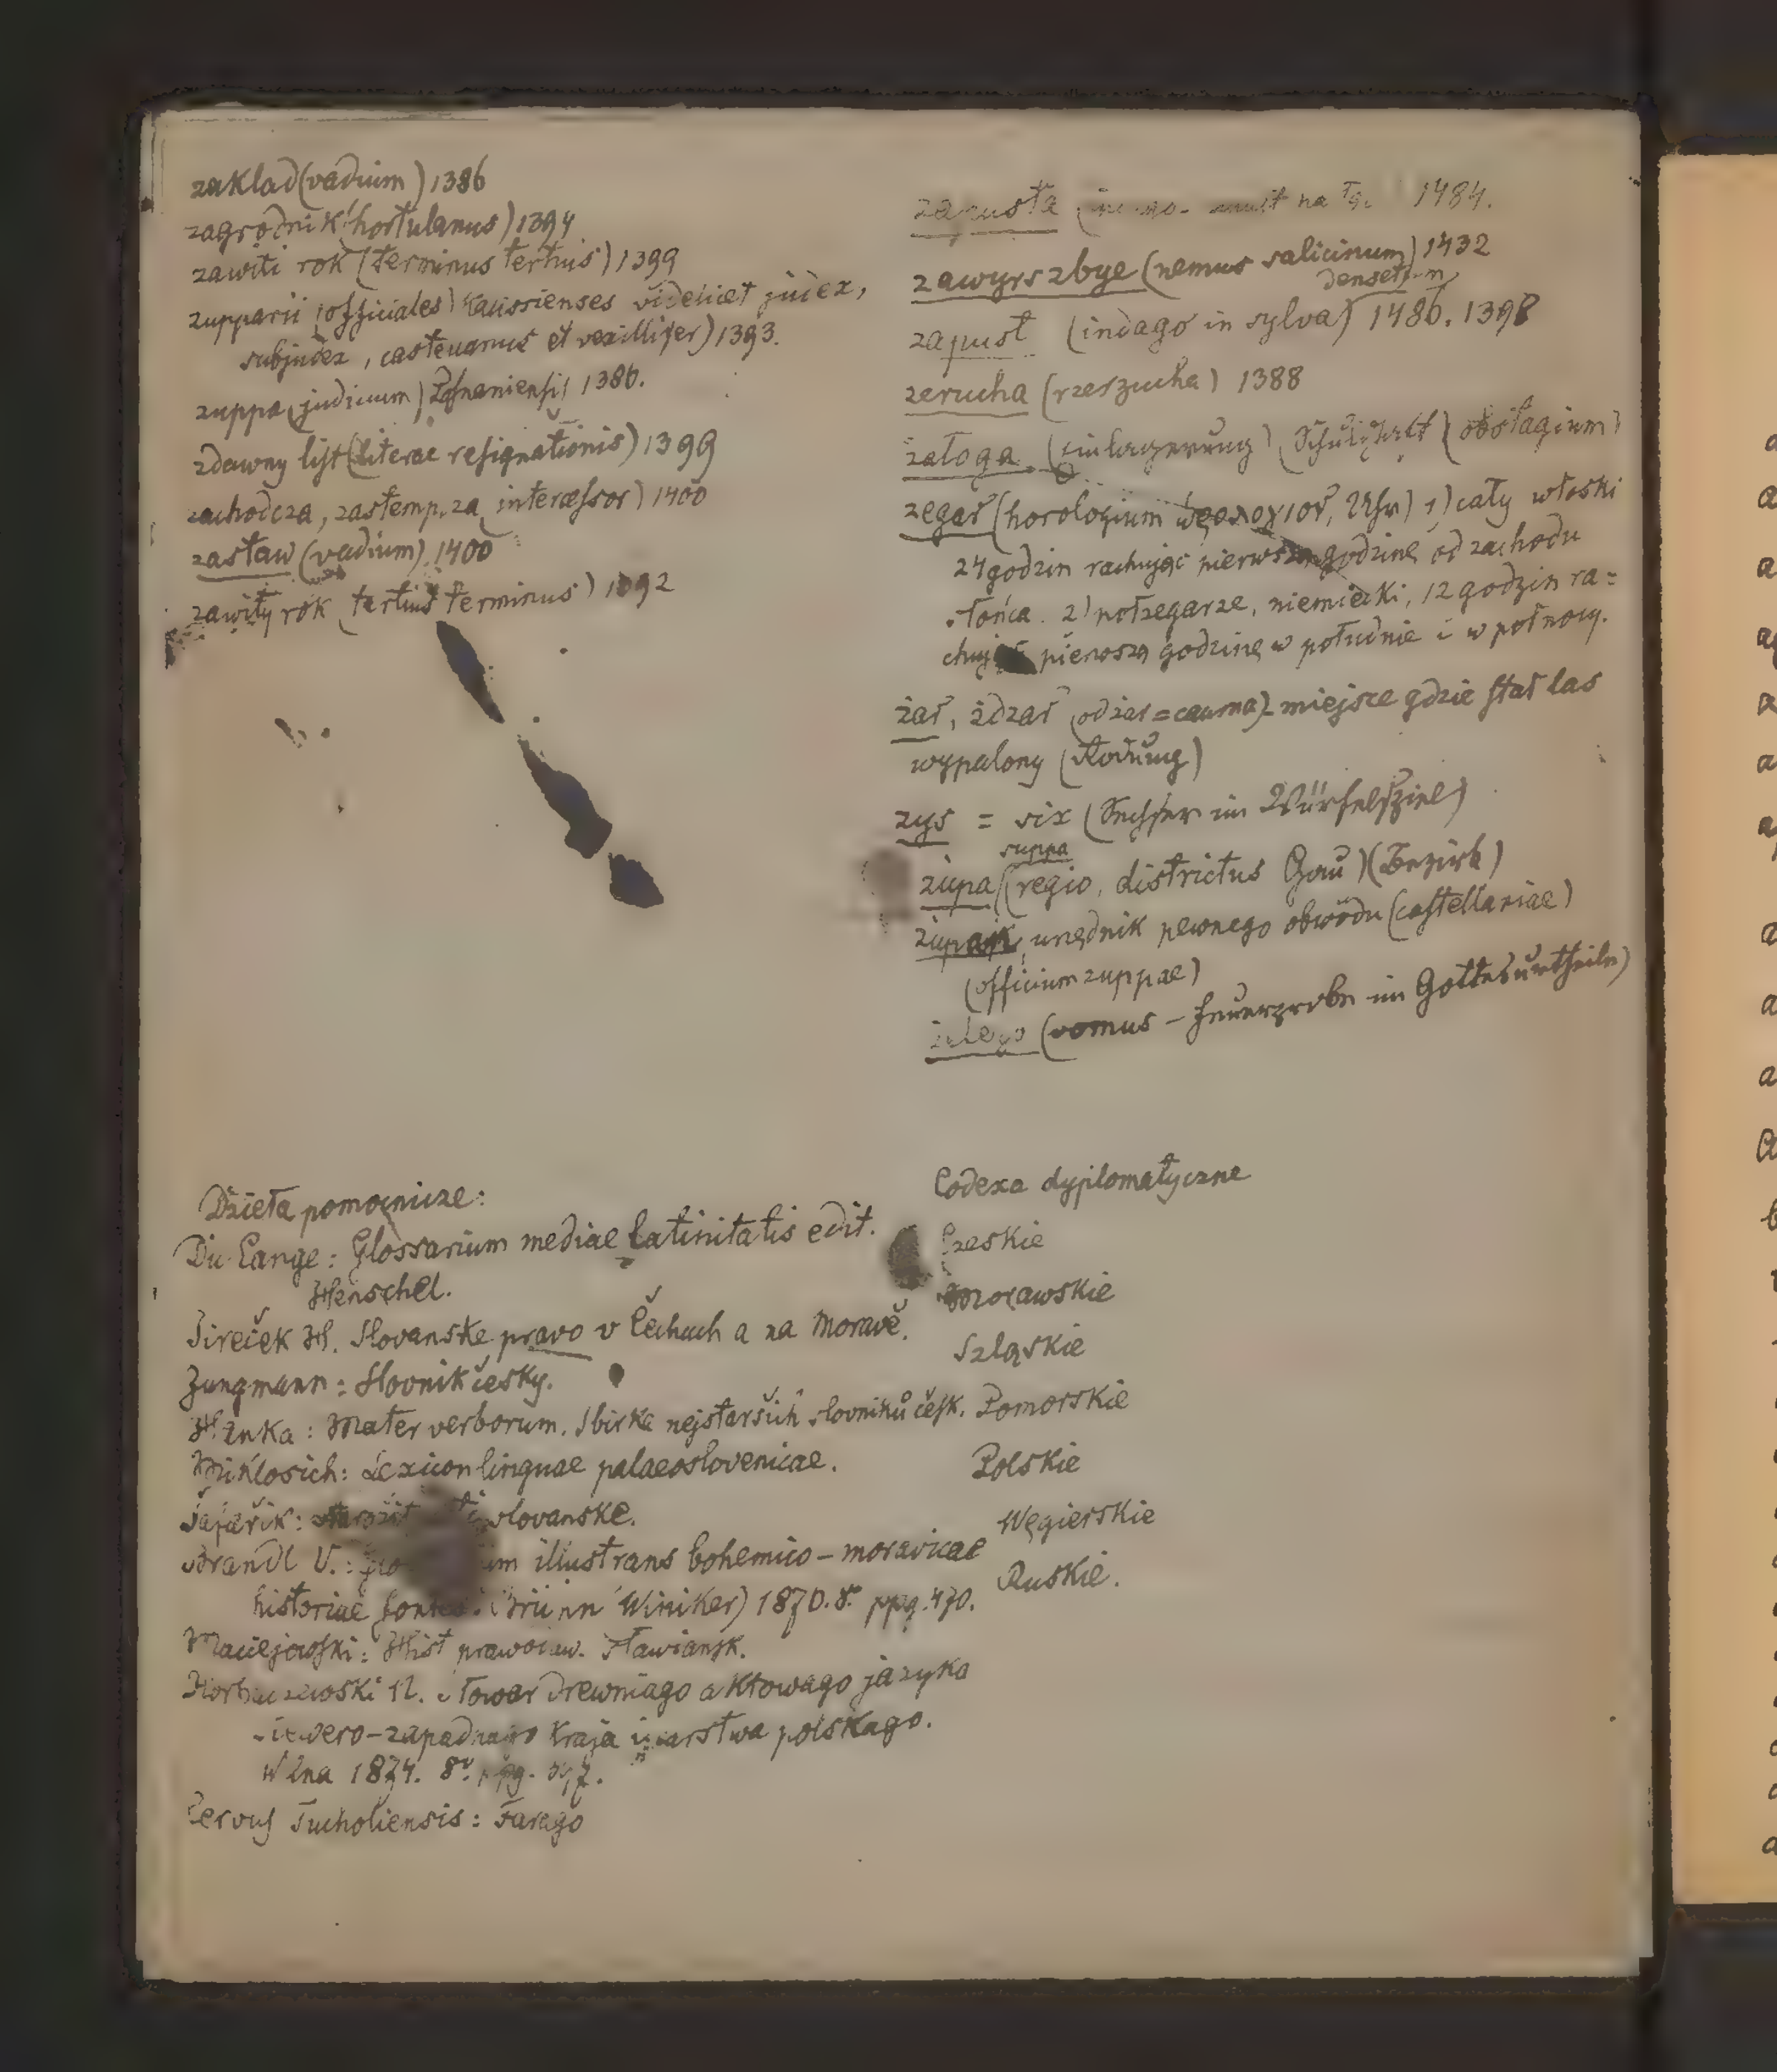 zaklad (vadium) 1386
zagrodnik (hortulanus) 1394
zawiti rok (terminus tertius) 1399
zupparii (officiales) videlicet judex,
subjudex, castellanus et vexillifer) 1393.
zuppa (judicium) Posnaniensis 1386.
zdawny list (literae resignationis) 1399
zachodcza, zastempcza (intercessor) 1400
zastaw (vadium) 1400
zawity rok (tertius terminus) 1392
zapusta 1484.
zawyrszbye (nemus salicinum) 1432
densetum
zapust (indago in sylva) 1486. 1398
zerucha (rzeszucha) 1388
załoga (Einlagerung) (obstagium)
zegar (horologium ὡρολογιον, Uhr) 1) cały włoski
24 godzin rachując pierwszą godzinę od zachodu
słońca. 2) półzegarze, niemiecki, 12 godzin ra=
chując pierwszą godzinę w południe i w północy.
żar, żdżar (od żar = cauma) miejsce gdzie stał las
wypalony (Rodung)
zys = six (Sechser im Würfelspiel)
suppa
żupa (regio, districtus Gau) (Bezirk)
żupan, urzędnik pewnego obwodu (castellaniae)
(officium zuppae)
(vomus – Feuerprobe im Gottesurtheile)
Dzieła pomocnicze:
Du Cange: Glossarium mediae latinitatis edit.
Henschel.
Jireček H. Slovanske pravo v Čechach a na Moravě.
Jungmann: Slovnik česky.
Hanka: Mater verborum. Sbirka nejstaršich slovniků česk.
Miklosich: Lexicon linguae palaeoslovenicae.
Šafařik: slovanske.
Brandl V.: illustrans bohemico–moravicae
historiae fontes. (Brünn Winiker) 1870. 8º ppg. 470.
Maciejowski: Hist prawodaw. Sławiansk.
Horbaczewski N. Słowar drewniago aktowago jazyka
siewero–zapadnago kraja i carstwa polskago.
Wilna 1874. 8º ppg.
Cervus Tucholiensis: Farago
Codexa dyplomatyczne
Czeskie
Morawskie
Szląskie
Pomorskie
Polskie
Węgierskie
Ruskie.